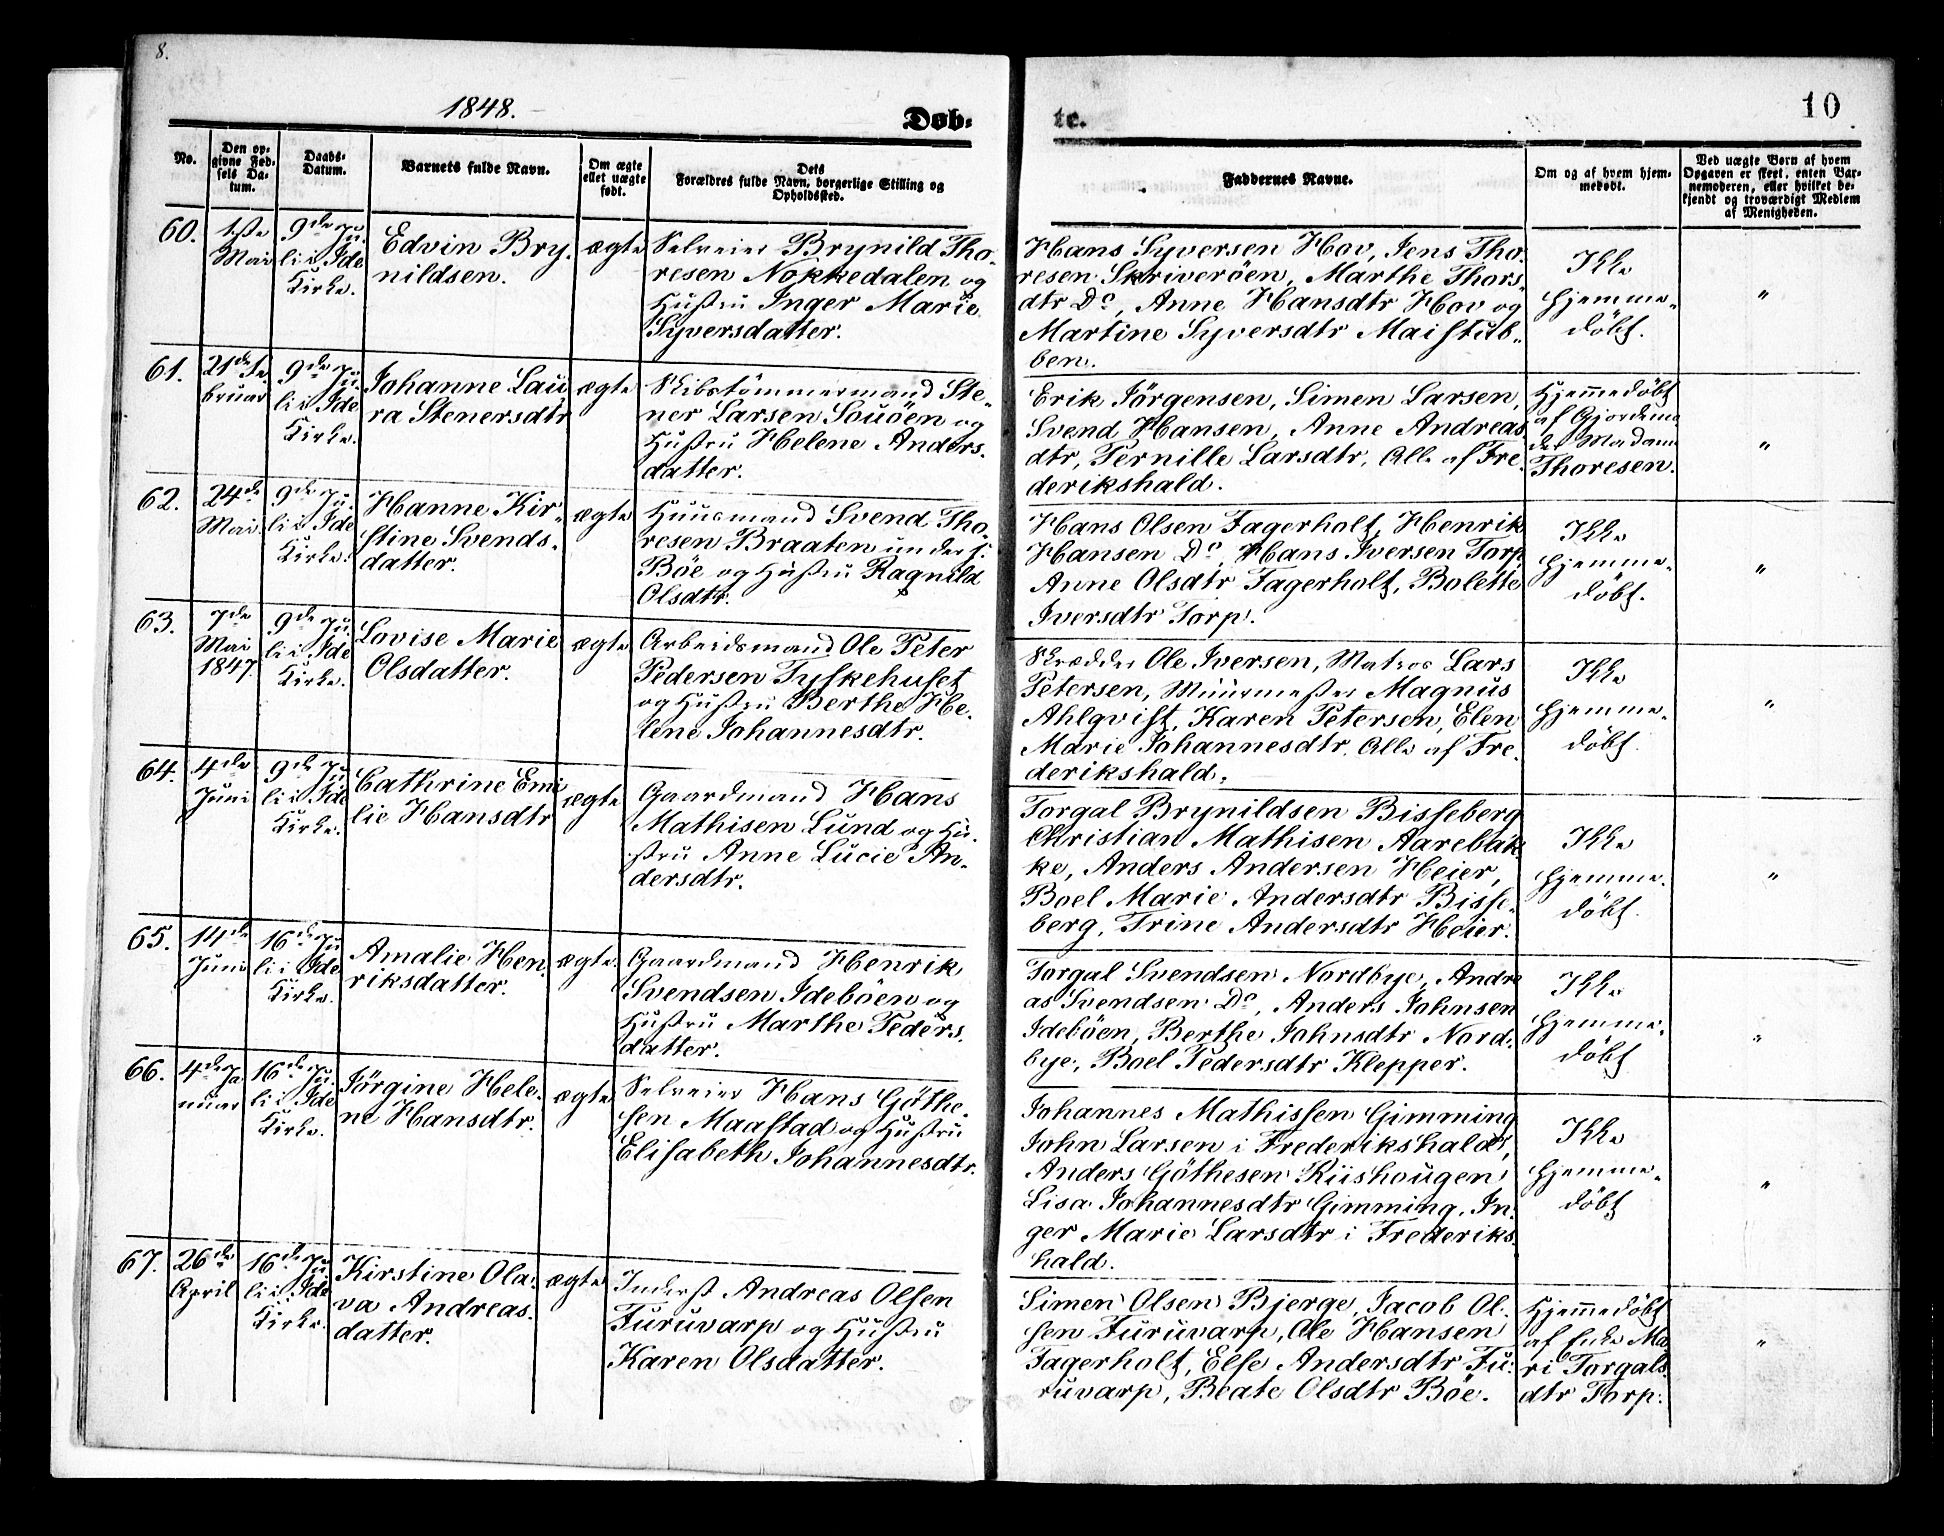 8.
1848.
Døb-
te.
10
No.
Den op-
givne Fød-
sels Da-
tum.
Daabs-
Datum.
Barnets fulde Navn.
Om ægte
ellet uægte
født.
Dets
Forældres fulde Navn, borgerlige Stilling og
Opholdssted.
Faddernes Navne.
Om og af hvem hjem-
medøbt.
Ved uægte Børn af hvem
Opgaven er skeet, enten Bar-
nemoderen, eller hvilket be-
kjendt og troværdigt Medlem
af Menigheden.
60.
1ste
Mai
9de Ju-
li i Ide
Kirke.
Edvin Bry-
nildsen.
ægte
Selveier Brynild Tho-
resen Nokkedalen og
Hustru Inger Marie
Syversdatter.
Hans Syversen Hov, Jens Tho-
resen Skriveröen, Marthe Thors-
dtr Do, Anne Hansdtr Hov og
Martine Syversdtr Maistub-
ben.
Ikke
hjemme-
döbt.
"
61.
21de Fe-
bruar
9de Ju-
li i Ide
Kirke.
Johanne Lau-
ra Stenersdtr
ægte
Skibstömmermand Ste-
ner Larsen Souöen og
Hustru Helene Anders-
datter.
Erik Jörgensen, Simen Larsen,
Svend Hansen, Anne Andreas
dtr, Pernille Larsdtr, Alle af Fre-
derikshald.
Hjemmedöbt
af Gjordemo
der Madam
Thoresen.
"
62.
24de
Mai.
9de Ju-
li i Ide
Kirke.
Hanne Kir-
stine Svends-
datter.
ægte
Huusmand Svend Tho-
resen Braaten under s:
Böe og Hustru Ragnild
Olsdtr.
Hans Olsen Fagerholt, Henrik
Hansen Do, Hans Iversen Torp,
Anne Olsdtr Fagerholt, Bolette
Iversdtr Torp.
Ikke
hjemme-
döbt.
"
63.
7de
Mai
1847.
9de Ju-
li i Ide
Kirke.
Lovise Marie
Olsdatter.
ægte
Arbeidsmand Ole Peter
Pedersen Tyskehuset
og Hustru Berthe He-
lene Johannesdtr.
Skrædder Ole Iversen, Matros Lars
Petersen, Muurmester Magnus
Ahlqvist, Karen Petersen, Elen
Marie Johannesdtr. Alle af Fre-
derikshald.
Ikke
hjemme-
döbt.
"
64.
4de
Juni
9de Ju-
li i Ide
Kirke.
Cathrine Emi
lie Hansdtr
ægte
Gaardmand Hans
Mathisen Lund og Hu-
stru Anne Lucie An-
dersdtr.
Torgal Brynildsen Bisseberg
Christian Mathisen Aarebak-
ke, Anders Andersen Heier,
Boel Marie Andersdtr Bisse-
berg, Trine Andersdtr Heier.
Ikke
hjemme-
döbt.
"
65.
14de
Juni
16de Ju-
li i Ide
Kirke.
Amalie Hen-
riksdatter.
ægte.
Gaardmand Henrik
Svendsen Ideböen og
Hustru Marthe Peders-
datter.
Torgal Svendsen Nordbye, Andre
as Svendsen Do, Anders Johnsen
Ideböen, Berthe Johnsdtr Nord-
bye, Boel Pedersdtr Klepper.
Ikke
hjemme-
döbt
"
66.
4de Ja
nuar
16de Ju-
li i Ide
Kirke.
Jörgine Hele-
ne Hansdtr.
ægte
Selveier Hans Göthe-
sen Maastad og Hustru
Elisabeth Johannesdtr.
Johannes Mathissen Gimming
John Larsen i Frederikshald,
Anders Göthesen Riishougen
Lisa Johannesdtr Gimming, In-
ger Marie Larsdtr i Frederiks-
hald.
Ikke
hjemme-
döbt
"
67.
26de
April
16de Ju-
li i Ide
Kirke.
Kirstine Ola-
va Andreas-
datter.
ægte
Inderst Andreas Olsen
Furuvarp og Hustru
Karen Olsdatter.
Simen Olsen Bjerge, Jacob Ol-
sen Furuvarp, Ole Hansen
Fagerholt, Else Andersdtr Fu-
ruvarp, Beate Olsdtr Böe.
Hjemmedöbt
af Enke Ma
ri Torgals-
dtr Torp.
"